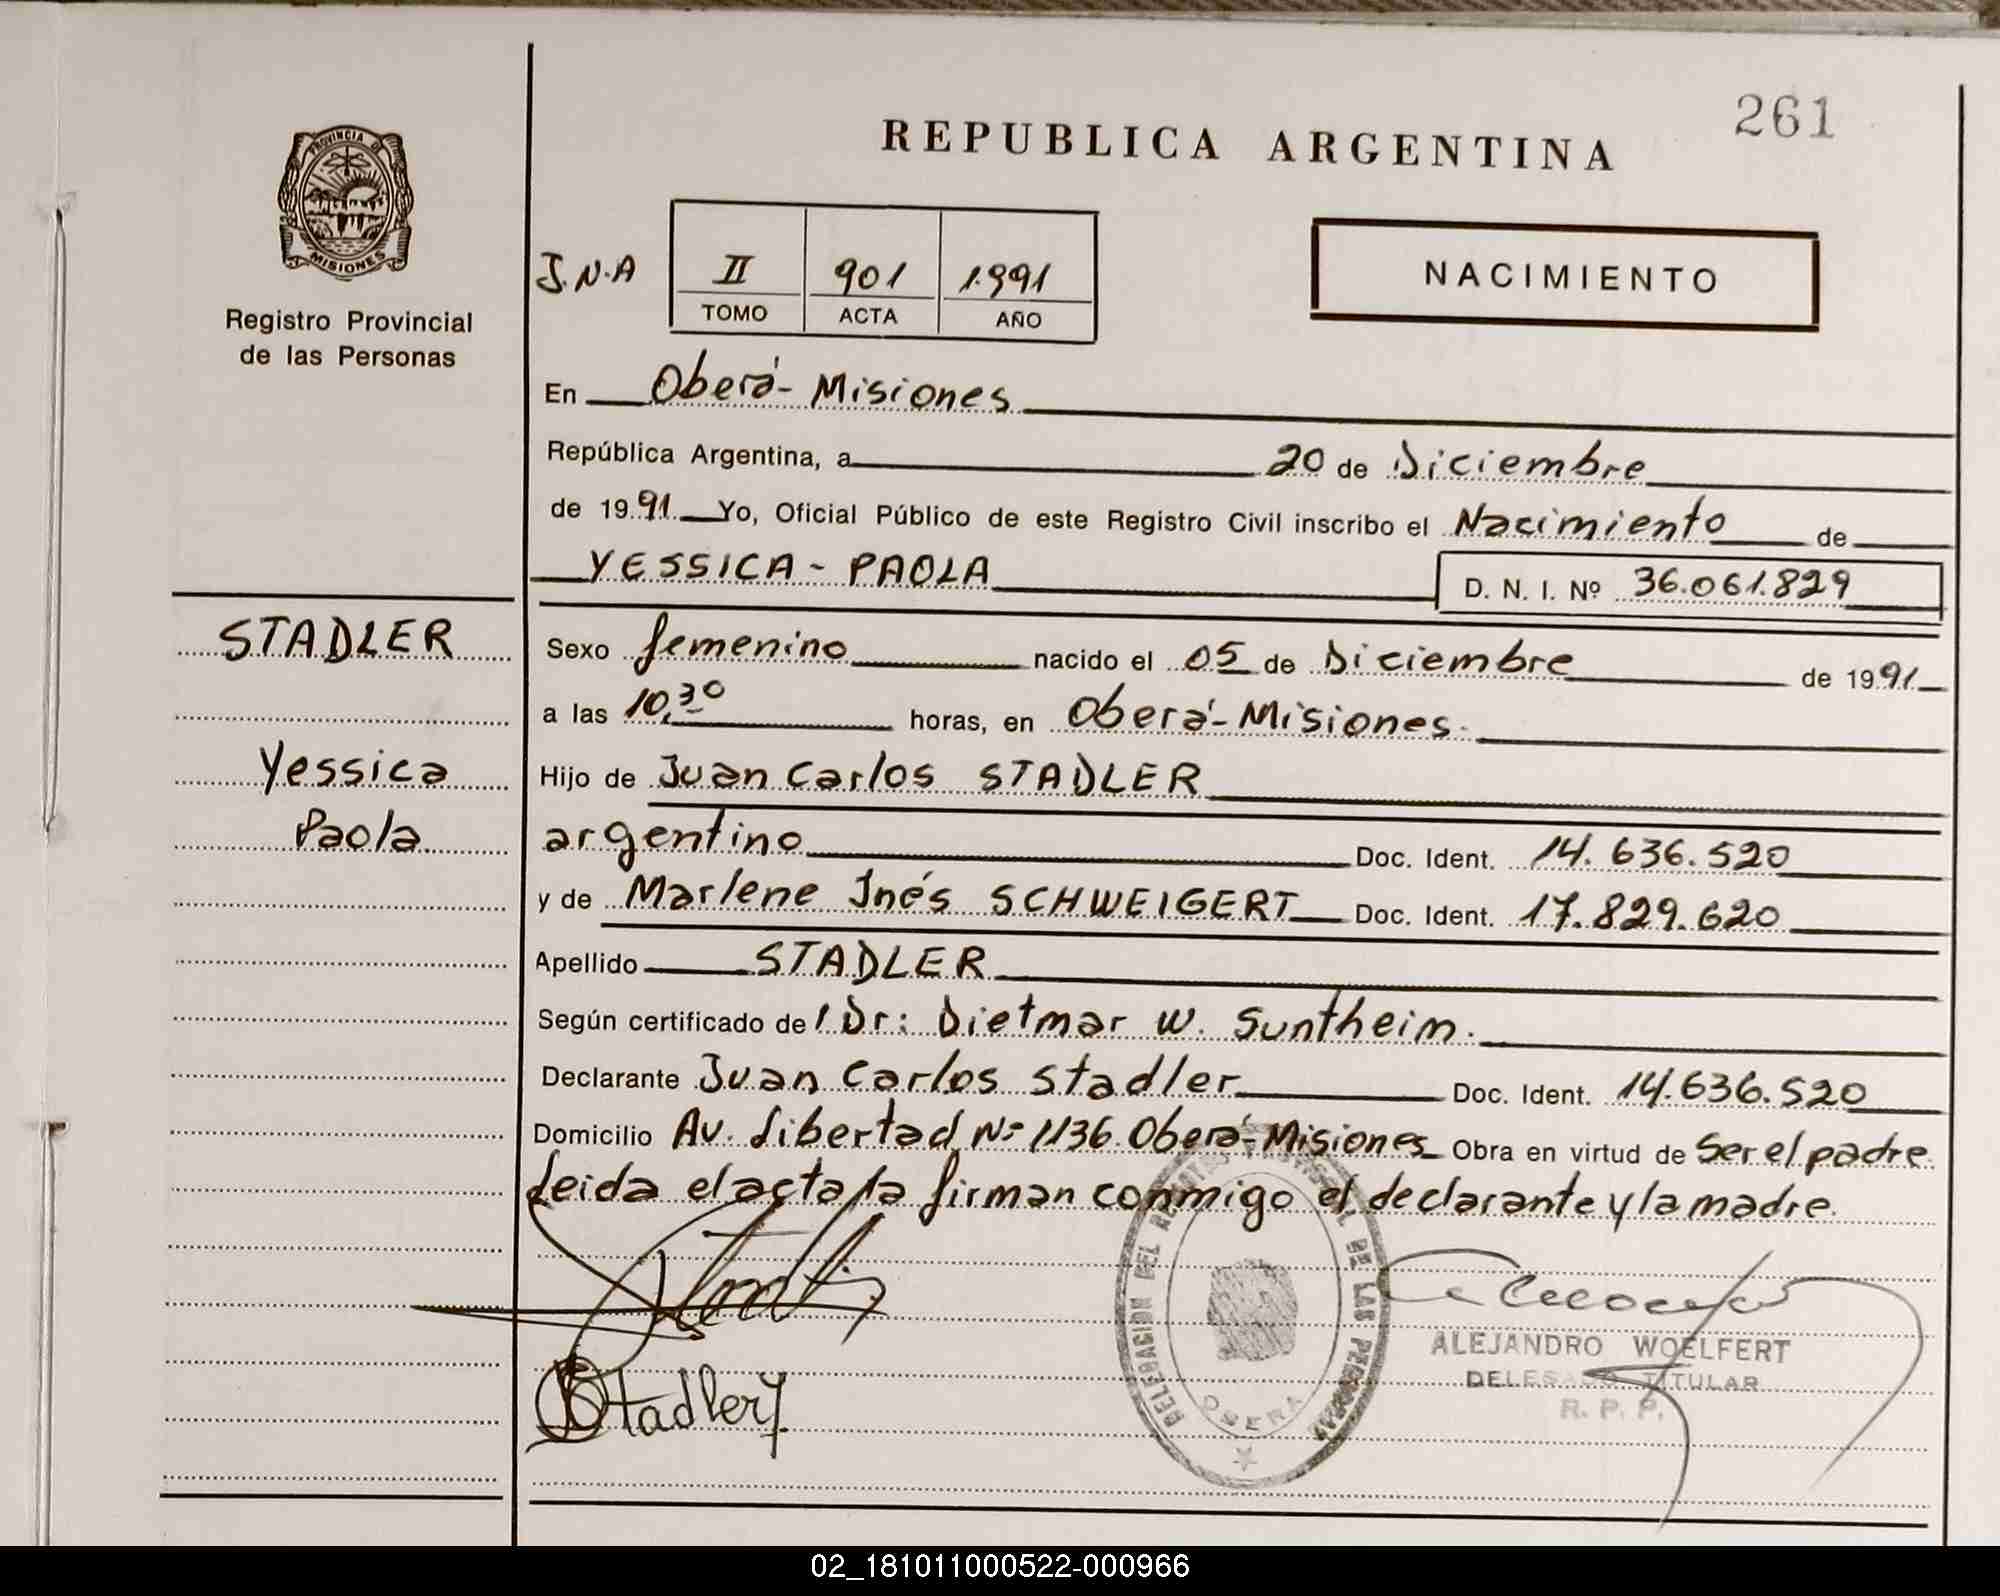 REPUBLICA ARGENTINA
261
PROVINCIA DE
MISIONES
Registro Provincial
de las Personas
J.N.A
II 901 1.991
TOMO ACTA AÑO
NACIMIENTO
En Oberá- Misiones
República Argentina, a 20 de Diciembre
de 1991 Yo, Oficial Público de este Registro Civil inscribo el Nacimiento de
YESSICA - PAOLA D. N. I. Nº 36.061.829
STADLER
Yessica
Paola
Sexo femenino nacido el 05 de Diciembre de 1991
a las 10,30 horas, en Oberá- Misiones.
Hijo de Juan Carlos STADLER
argentino Doc. Ident. 14.636.520
y de Marlene Inés SCHWEIGERT Doc. Ident. 17.829.620
Apellido STADLER
Según certificado de l Dr: Dietmar W. Suntheim.
Declarante Juan Carlos Stadler Doc. Ident. 14.636.520
Domicilio Av. Libertad Nº 1136 Oberá- Misiones Obra en virtud de Ser el padre
Leida el acta la firman conmigo el declarante y la madre.
DELEGACION DEL DE LAS
OBERA
ALEJANDRO WOELFERT
DELEGADO TITULAR
R. P. P.
Stadler
02_181011000522-000966